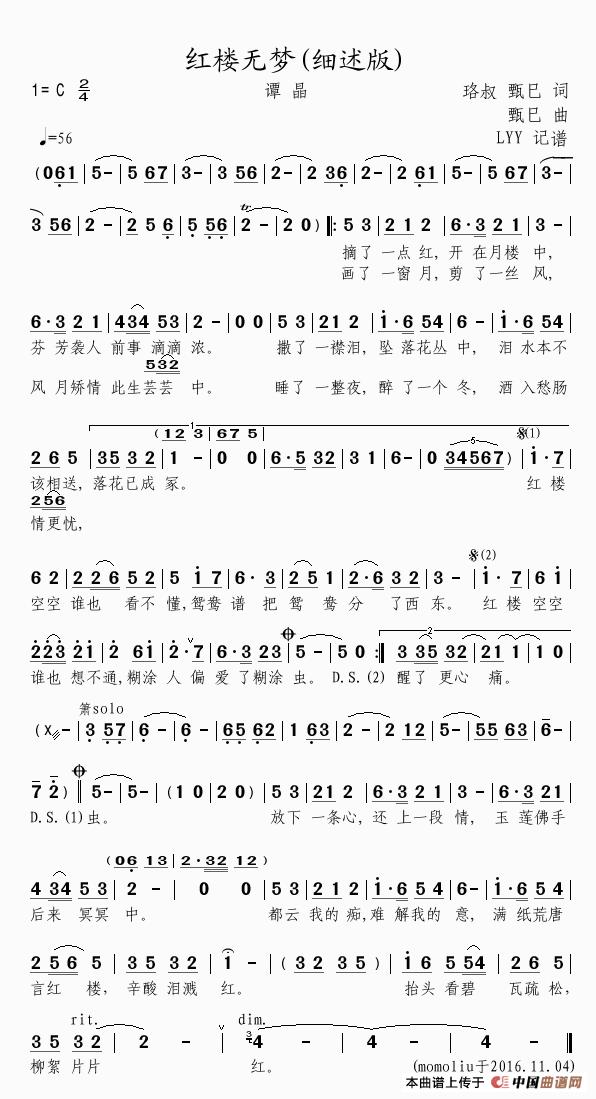 红楼无梦(细述版)
1= C 2/4 谭 晶 珞叔 甄巳 词
甄巳 曲
♩=56 LYY 记谱
(061|5-|5 67|3-|3 56|2-|2 36|2-|2 61|5-|5 67|3-|
3 56|2-|2 5 6|5 56|2-|2 0)‖:5 3|2 1 2|6·3 2 1|3 -|
摘了 一点 红, 开 在月楼 中,
画了 一窗 月, 剪 了一丝 风,
6·3 2 1|434 53|2-|0 0|5 3|21 2|1·6 54|6-|1·6 54|
芬 芳袭人 前事 滴滴 浓。 撒了 一襟泪, 坠 落花丛 中, 泪 水本不
532
风 月矫情 此生芸芸 中。 睡了 一整夜, 醉 了一个 冬, 酒 入愁肠
1
(12 3|67 5|
2 6 5|35 3 2|1 -|0 0|6·5 32|3 1|6-|0 34567)|1·7
5
𝄋(1)
该相送, 落花已成 冢。 红 楼
256
情更忧,
𝄋(2)
6 2|2 26 5 2|5 17|6·3|25 1|2·6 3 2|3 -|1·7|6 1|
空空 谁也 看不 懂,鸳鸯 谱 把 鸳 鸯 分 了西 东。 红 楼 空空
2
223 21|2 61|2·7|6·3 23|5-|5 0:‖3 35 32|21 1|1 0|
谁也 想不通,糊涂 人 偏 爱 了糊涂 虫。 D.S.(2) 醒了 更心 痛。
箫solo
(X-|3 57|6-|6-|65 62|1 63|2-|2 12|5-|55 63|6-|
7 2)‖5-|5-|(1 0|2 0)|5 3|21 2|6·3 21|3-|6·3 21|
D.S.(1)虫。 放下 一条心, 还 上一段 情, 玉 莲佛手
(06 13|2·32 12)
4 34 5 3|2-|0 0|5 3|21 2|1·6 5 4|6-|1·6 5 4|
后来 冥冥 中。 都云 我的 痴,难 解我的 意, 满 纸荒唐
2 56 5|35 32|1-|(32 35)|1·6 5 54|2 6 5|
言红 楼, 辛酸 泪溅 红。 抬头 看碧 瓦疏 松,
rit. dim.
35 32|2-|2-|4-|4-|4-‖
柳絮 片片 红。 (momoliu于2016.11.04)
本曲谱上传于 中国曲谱网